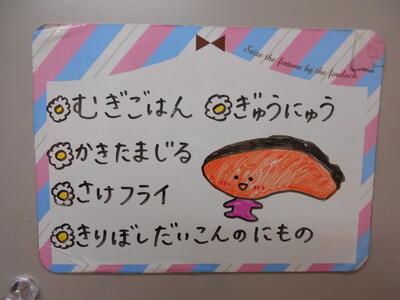 Seize the fortune by the forelock.
むぎごはん ぎゅうにゅう
かきたまじる
さけフライ
きりぼしだいこんのにもの